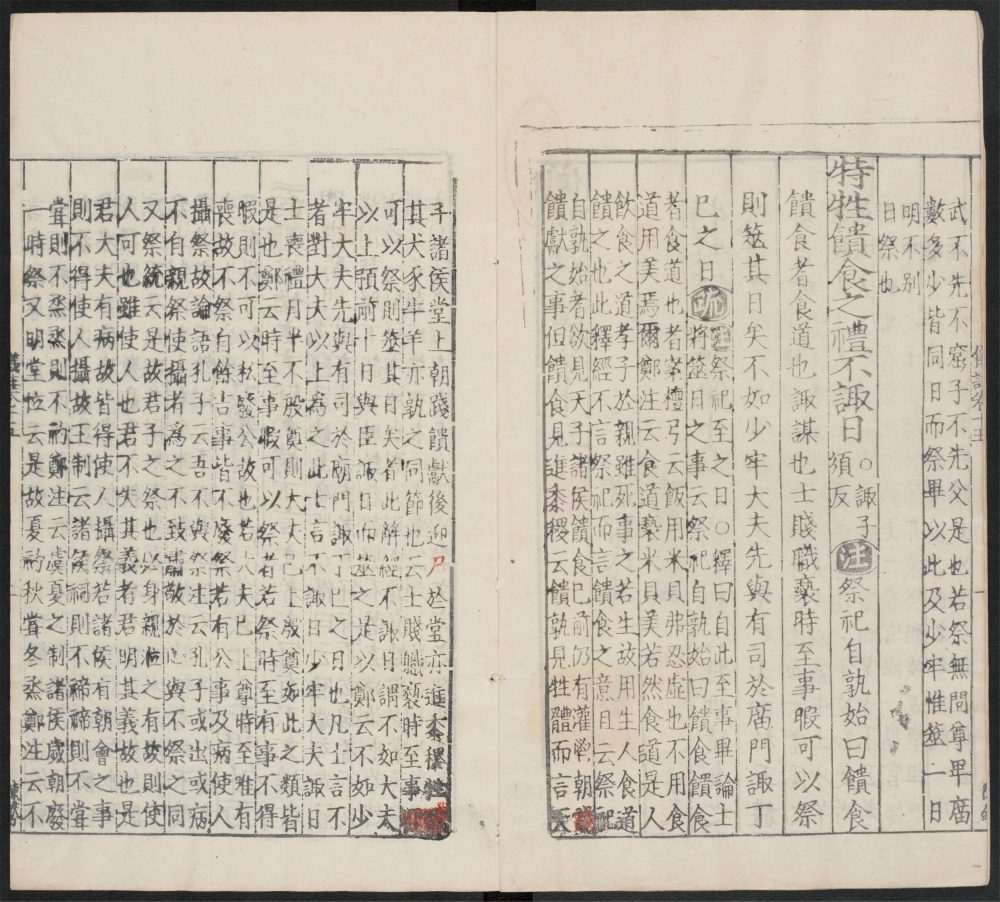 武不先不窋子不先父是也若祭無問尊卑廟
數多少皆同日而祭畢以此及少牢惟筮一日
明不别
日祭也
特牲饋食之禮不諏日○諏子須反 注祭祀自孰始曰饋食
饋食者食道也諏謀也士賤職褻時至事暇可以祭
則筮其日矣不如少牢大夫先與有司於廟門諏丁
巳之日疏注祭祀至之日○釋曰自此至事畢論士
將筮日之事云祭祀自孰始曰饋食饋食
者食道也者案檀弓云飯用米貝弗忍虛也不用食
道用美焉爾鄭注云食道褻米貝美若然食道是人
飲食之道孝子於親雖死事之若生故用生人食道
饋之也此釋經不言祭祀而言饋食之意且云祭祀
自孰始者欲見天子諸侯饋食已前仍有灌鬯朝踐
饋獻之事但饋食見進黍稷云饋孰見牲體而言天
子諸侯堂上朝踐饋獻後迎尸於堂亦進黍稷牲
其犬豕牛羊亦孰之同節也云士賤職褻時至事
可以祭則筮其日矣者此解經不諏日謂不如大夫
以上預前十日與臣諏日而筮之是以鄭云不如少
牢大夫先與有司於廟門諏丁巳之日也凡士言不
者對大夫以上為之此士言不諏日少牢大夫諏日
士喪禮月半不殷奠則大夫已上殷奠如此之類皆
是也鄭云時至事暇可以祭者若祭時至有事不得
暇則不可以私廢公故也若大夫已上尊時至雖有
喪故不祭自餘吉事皆不廢祭若有公事及病使人
攝祭故論語孔子云吾不與祭注云孔子或出或病
不自親祭使攝者為之不致肅敬於心與不祭之同
又祭統云是故君子之祭也以身親涖之有故則使
人可也雖使人也君不失其義者君明其義故也是
君大夫有病故皆得使人攝祭若諸侯有朝會之事
則不得使人攝故王制云諸侯礿則不禘禘則不甞
甞則不烝烝則不礿鄭注云虞夏之制諸侯歳朝廢
一時祭又明堂位云是故夏礿秋甞冬烝鄭注云不